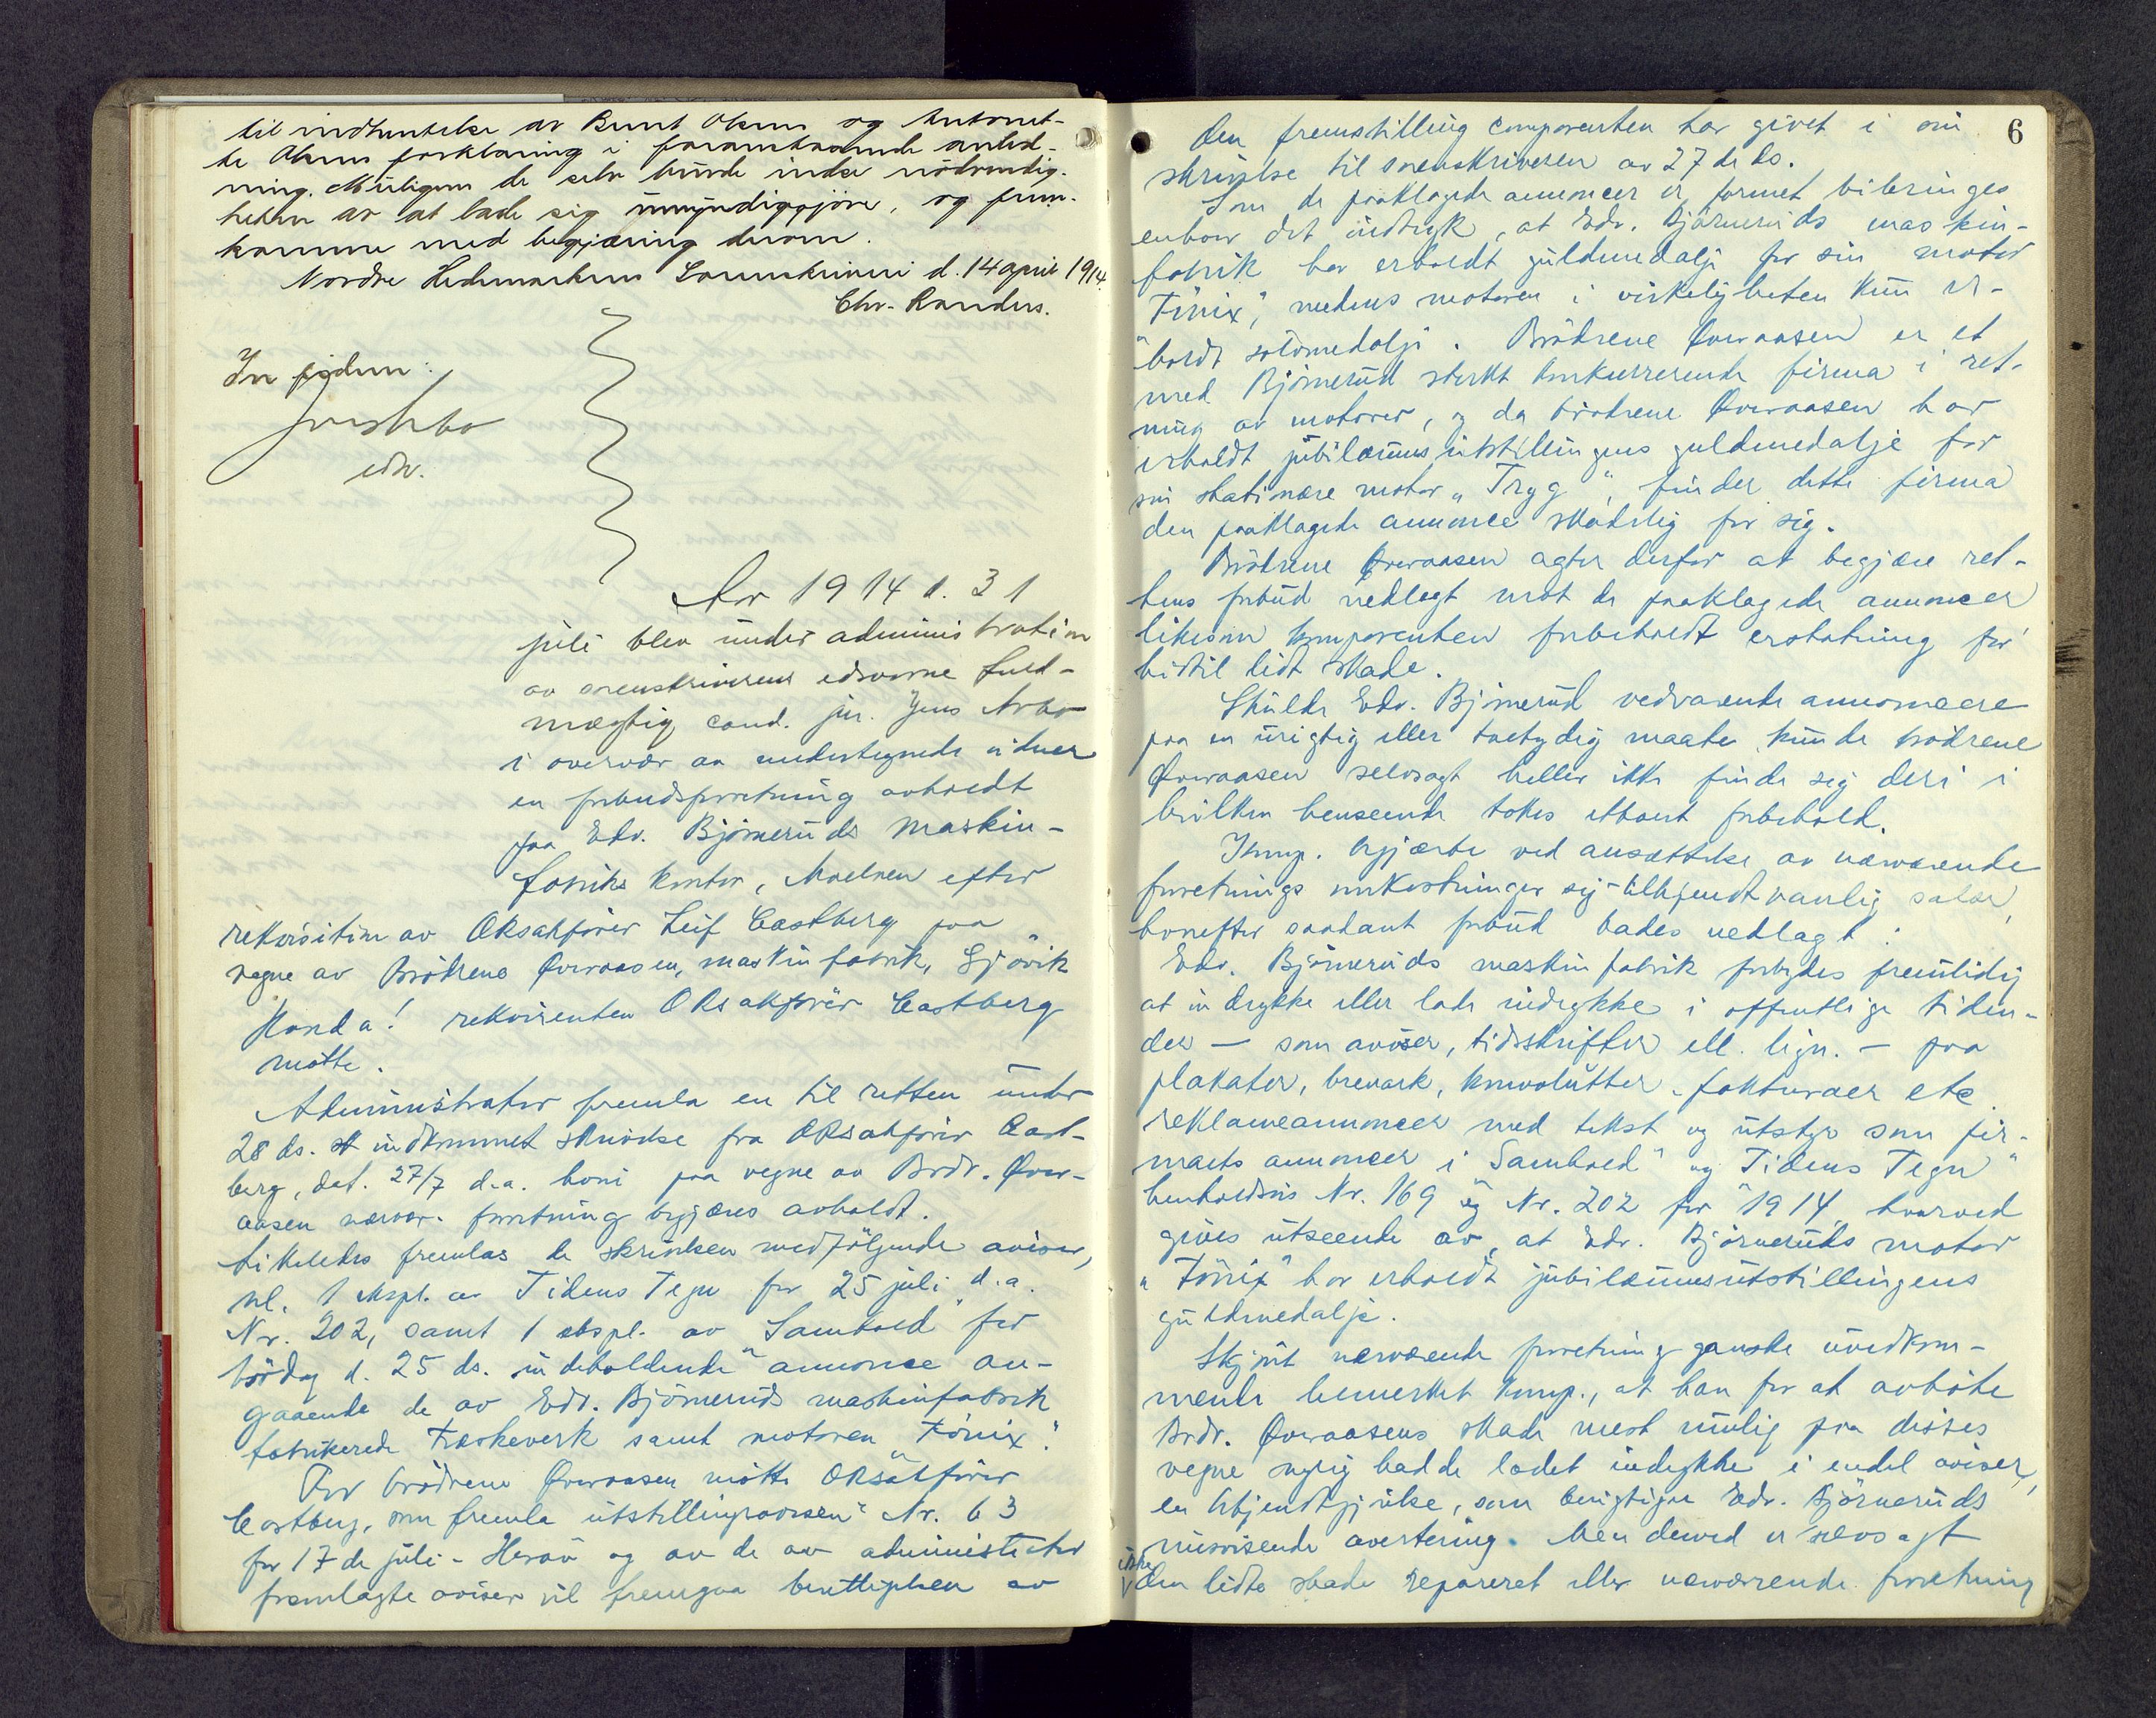 til indhentelse av Bernt Olsens og Antonet-
te Olsens forklaring i foranstaaende anled-
ning. Muligens de selv burde indse nödvendig-
heten av at lade sig umyndiggjöre, og frem-
komme med begjæring derom.
Nordre Hedemarkens Sorenskriveri d. 14 april 1914.
Chr. Randers.
In fidem:
edv.
Aar 1914 d. 31
juli blev under administration
av sorenskriverens edsvorne fuld-
mægtig cand. jur. Jens Arbo
i overvær av undertegnede vidner
en forbudsforretning avholdt
paa Edv. Björneruds maskin-
fabriks kontor, Moelven efter
rekvisition av Oksakförer Leif Castberg paa
vegne av Brödrene Överaasen, maskinfabrik, Gjövik
Handa! rekvirenten Oksakförer Castberg
mötte.
Administrator fremla en til retten under
28 ds. indkommet skrivelse fra Oksakförer Cast-
berg, dat. 27/7 d.a. hvori paa vegne av Brdr. Över-
aasen nærvær. forretning begjæres avholdt.
Likeledes fremlas de skrivelsen medfölgende aviser,
nl. 1 ekspl. av Tidens Tegn for 25 juli d.a.
Nr. 202, samt 1 ekspl. av "Samhold" for
lördag d. 25 ds. indeholdende annonce an-
gaaende de av Edv. Björneruds maskinfabrik
fabrikerede træskeverk samt motoren "Fönix".
For brödrene Överaasen mötte Oksakförer
Castberg, som fremla "utstillingsavisen" Nr. 63
for 17de juli. Herav og av de av administrator
fremlagte aviser vil fremgaa berettigelsen av
6
den fremstilling comparenten har givet i sin
skrivelse til sorenskriveren av 27de ds.
Som de paaklagede annoncer er formet bibringes
enhver det indtryk, at Edv. Björneruds maskin-
fabrik har erholdt guldmedalje for sin motor
"Fönix", medens motoren i virkeligheten kun er-
holdt sölvmedalje. Brödrene Överaasen er et
med Björnerud sterkt konkurrerende firma i ret-
ning av motorer, og da brödrene Överaasen har
erholdt jubilæumsutstillingens guldmedalje for
sin stationære motor "Tryg", finder dette firma
den paaklagede annonce skadelig for sig.
Brödrene Överaasen agter derfor at begjære ret-
tens forbud nedlagt mot de paaklagede annoncer
likesom komparenten forbeholdt erstatning for
hittil lidt skade.
Skulde Edv. Björnerud vedvarende annoncere
paa en urigtig eller tvetydig maate, kunde brödrene
Överaasen selvsagt heller ikke finde sig deri i
hvilken henseende tokes ethvert forbehold.
Komp. begjærte ved ansættelse av nærværende
forretnings omkostninger sig tilkjendt vanlig salær,
hvorefter saadant forbud bades nedlagt:
Edv. Björneruds maskinfabrik forbydes fremtidig
at indrykke eller lade indrykke i offentlige tiden-
der — som aviser, tidsskrifter ell. lign. — paa
plakater, brevark, konvolutter, fakturaer etc
reklameannoncer med tekst og utstyr som fir-
maets annoncer i "Samhold" og "Tidens Tegn"
henholdsvis Nr. 169 og Nr. 202 for 1914, hvorved
gives utseende av, at Edv. Björneruds motor
"Fönix" har erholdt jubilæumsutstillingens
guldmedalje.
Skjönt nærværende forretning ganske uvedkom-
mende bemerket komp., at han for at avböte
Brdr. Överaasens skade mest mulig paa disses
vegne nylig hadde ladet indrykke i endel aviser,
en bekjendtgjörelse, som berigtiger Edv. Björneruds
misvisende avertering. Men derved er selvsagt
ikke
den lidte skade repareret eller nærværende forretning